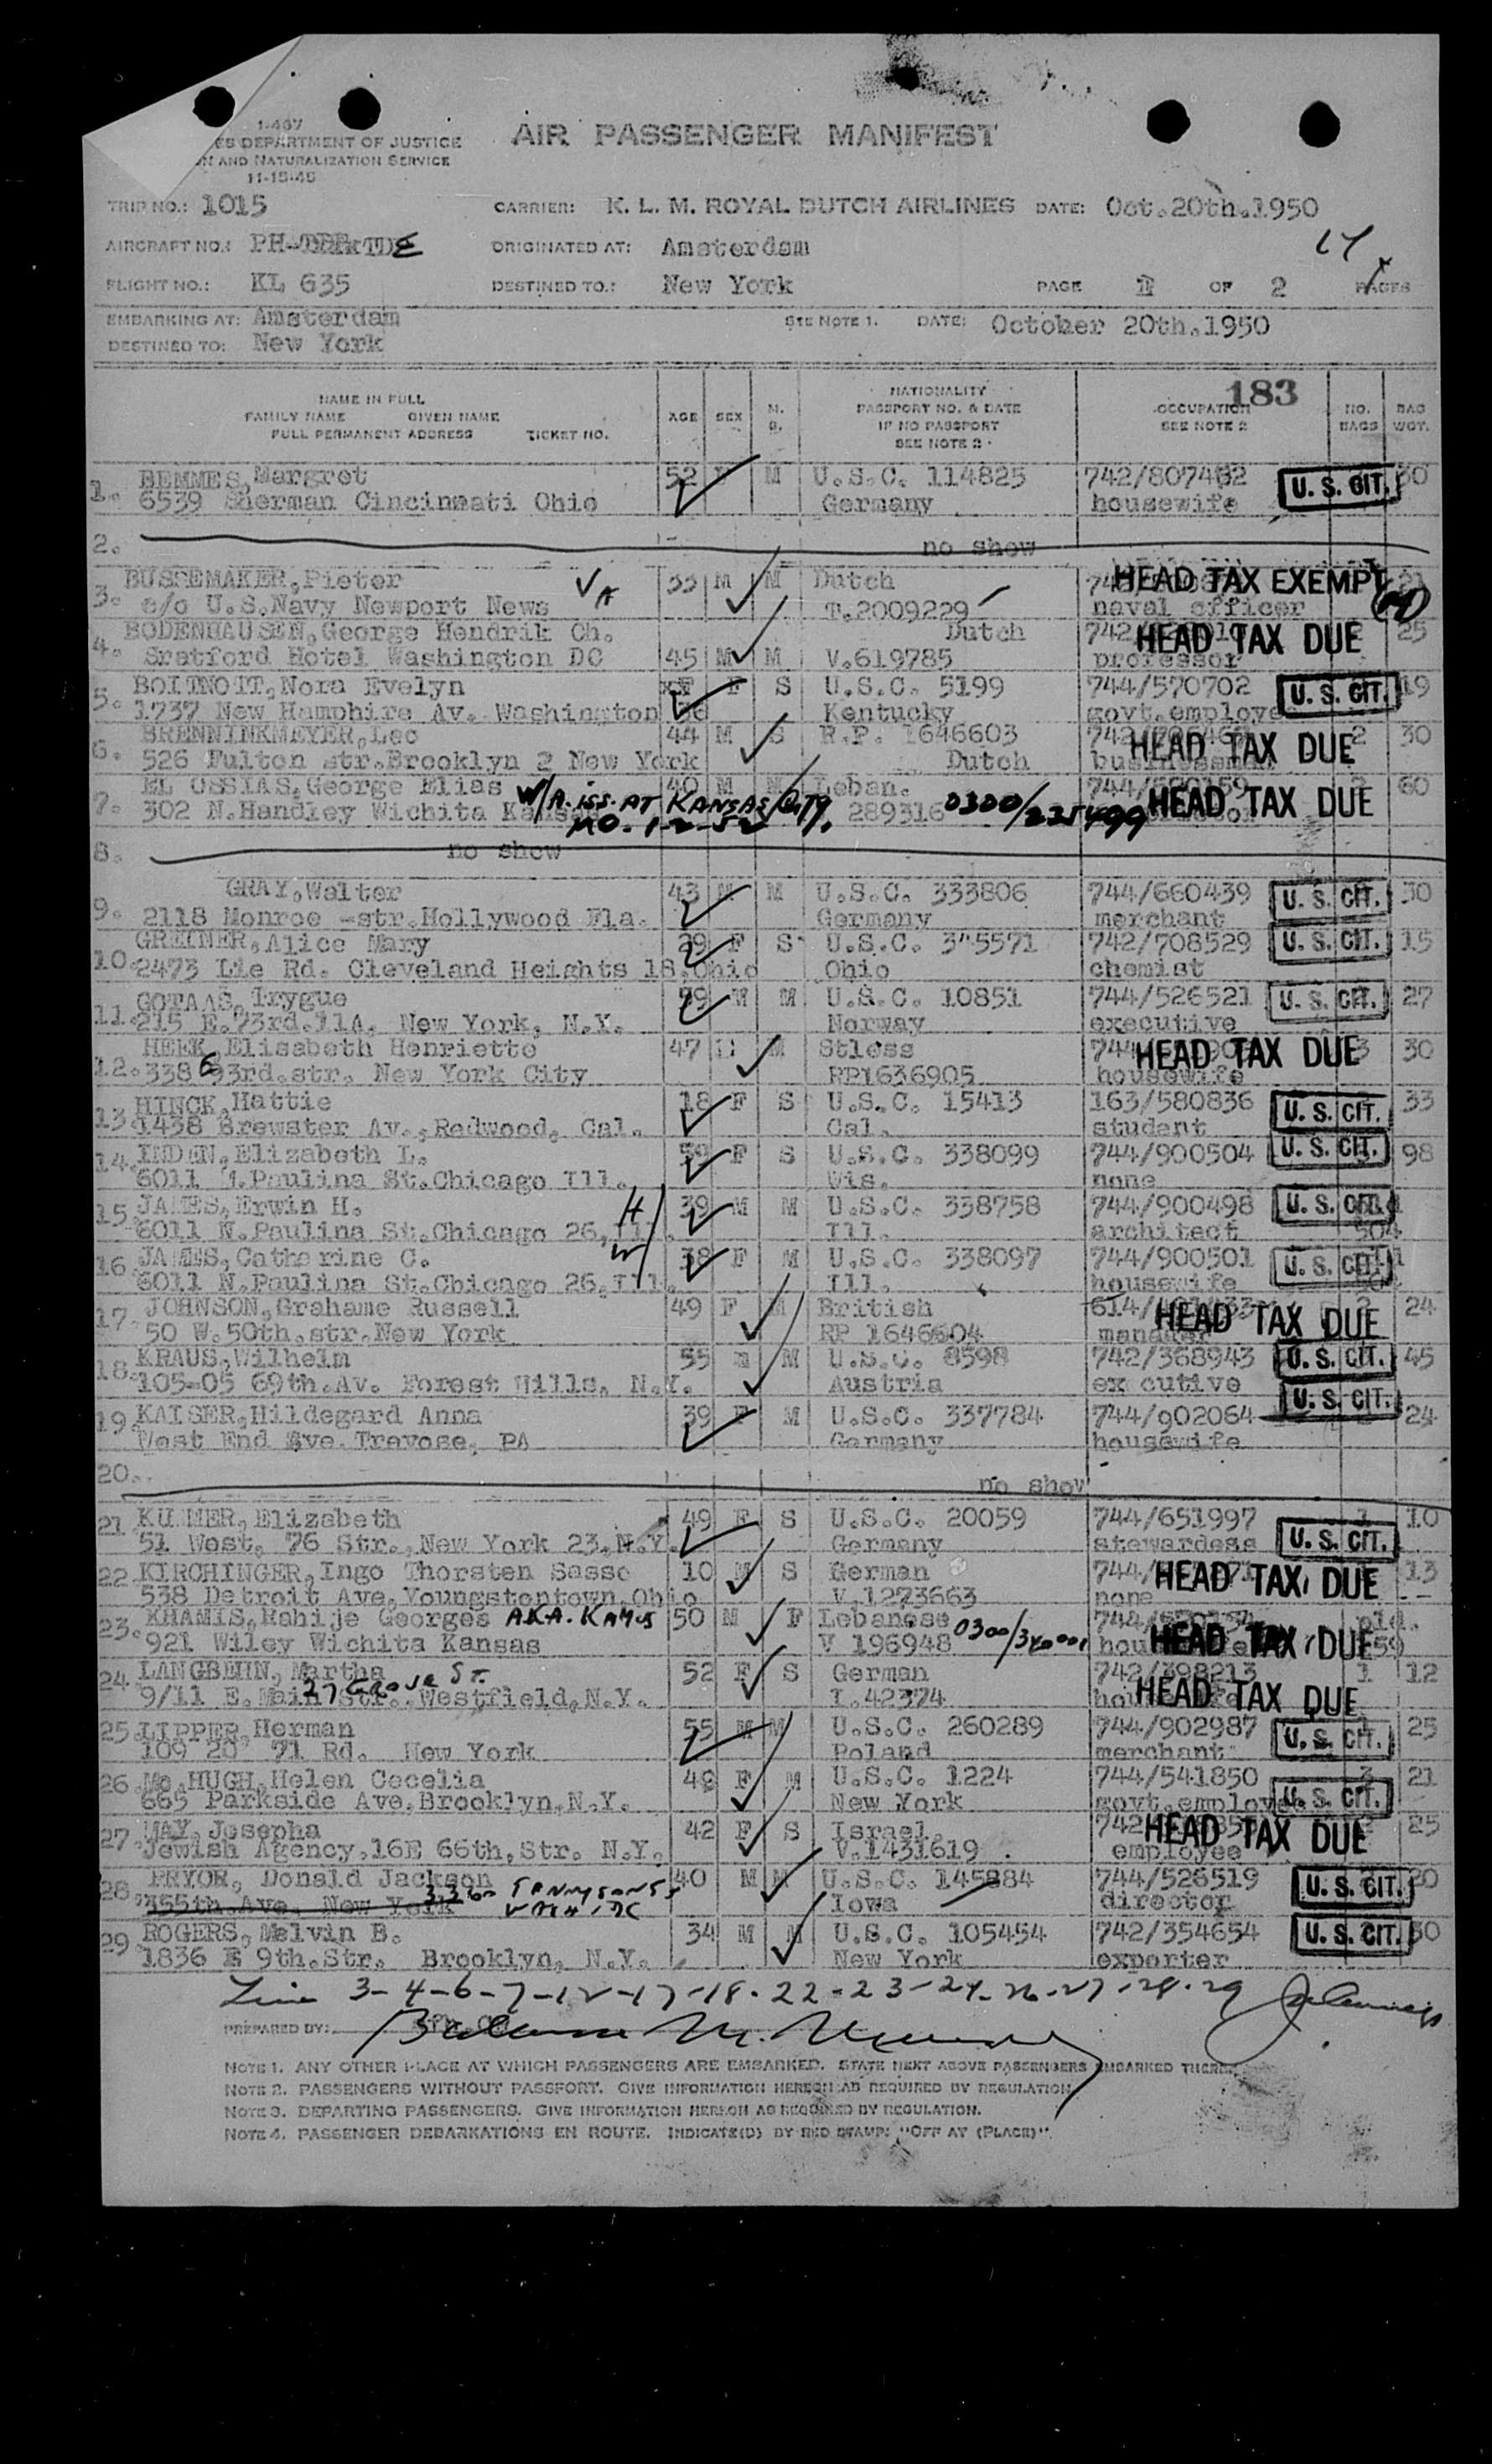 1-467
ES DEPARTMENT OF JUSTICE
N AND NATURALIZATION SERVICE
11-15-45
AIR PASSENGER MANIFEST
TRIP NO.: 1015 CARRIER: K. L. M. ROYAL DUTCH AIRLINES DATE: Oct.20th.1950
AIRCRAFT NO.: PH- ORIGINATED AT: Amsterdam
FLIGHT NO.: KL 635 DESTINED TO.: New York PAGE OF 2 PAGES
EMBARKING AT: Amsterdam SEE NOTE 1. DATE: October 20th.1950
DESTINED TO: New York
183
NAME IN FULL NATIONALITY
FAMILY NAME GIVEN NAME AGE SEX M. S. PASSPORT NO. & DATE OCCUPATION NO. BAG
FULL PERMANENT ADDRESS TICKET NO. IF NO PASSPORT SEE NOTE 2 BAGS WGT.
SEE NOTE 2
1. BEMMES,Margret 52 M U.S.C. 114825 742/807482 U. S. CIT. 30
6539 Sherman Cincinnati Ohio Germany housewife
2. no show
3. BUSSEMAKER,Pieter VA M M Dutch HEAD TAX EXEMPT
c/o U.S.Navy Newport News T.2009229 naval officer
4. BODENHAUSEN,George Hendrik Ch. Dutch 742/ HEAD TAX DUE 25
Sratford Hotel Washington DC 45 M M V.619785 professor
5. BOITNOIT,Nora Evelyn F S U.S.C. 5199 744/570702 U. S. CIT. 19
1737 New Hamphire Av. Washington Kentucky govt.employe
6. BRENNINKMEYER,Leo 44 M S R.P. 1646603 HEAD TAX DUE 2 30
526 Fulton str.Brooklyn 2 New York Dutch businessman
7. EL OSSIAS,George Elias 40 M M Leban. 744/ HEAD TAX DUE 60
302 N.Handley Wichita Kansas W/A. ISS. AT KANSAS CITY, MO. 1-2-52 289316 0300/225499
8. no show
9. GRAY,Walter 43 M M U.S.C. 333806 744/660439 U. S. CIT. 30
2118 Monroe -str.Hollywood Fla. Germany merchant
10. GREINER,Alice Mary 29 F S U.S.C. 742/708529 U. S. CIT. 15
2473 Lie Rd. Cleveland Heights 18.Ohio Ohio chemist
11. GOTAAS,Trygue M U.S.C. 10851 744/526521 U. S. CIT. 27
215 E.73rd.11A, New York, N.Y. Norway executive
12. HEEK,Elisabeth Henriette 47 M Stless 744 HEAD TAX DUE 3 30
338 E 93rd.str. New York City RP1636905 housewife
13. HINCK,Hattie 18 F S U.S.C. 15413 163/580836 U. S. CIT. 33
1438 Brewster Av.,Redwood, Cal. Cal. student
14. INDEN,Elizabeth L. 59 F S U.S.C. 338099 744/900504 U. S. CIT. 98
6011 N.Paulina St.Chicago Ill. Wis. none
15. JAMES,Erwin H. H 39 M M U.S.C. 338758 744/900498 U. S. CIT.
6011 N.Paulina St.Chicago 26,Ill. Ill. architect 504
16. JAMES,Catherine C. W 38 F M U.S.C. 338097 744/900501 U. S. CIT.
6011 N.Paulina St.Chicago 26,Ill. Ill. housewife
17. JOHNSON,Grahame Russell 49 F M British 614/ HEAD TAX DUE 24
50 W.50th.str.New York RP 1646604 manager
18. KRAUS,Wilhelm 55 M M U.S.C. 8598 742/368943 U. S. CIT. 45
105-05 69th.Av. Forest Hills, N.Y. Austria ex cutive
19. KAISER,Hildegard Anna 39 F M U.S.C. 337784 744/902064 U. S. CIT. 24
West End Ave.Trevose, PA Germany housewife
20. no show
21. KUMMER,Elizabeth 49 F S U.S.C. 20059 744/651997 1 10
51 West. 76 Str.,New York 23,N.Y. Germany stewardess U. S. CIT.
22. KIRCHINGER,Ingo Thorsten Sasse 10 M S German 744/ HEAD TAX DUE 13
538 Detroit Ave.Youngstontown,Ohio V.1273663 none
23. KHAMIS,Rahije Georges A.K.A. KAMIS 50 M F Lebanese 744/ pld.
921 Wiley Wichita Kansas V 196948 0300/340001 HEAD TAX DUE 59
24. LANGBEHN, Martha 52 F S German 742/398213 1 12
27 Grove St.
9/11 E.Main str.,Westfield,N.Y. I.42374 HEAD TAX DUE
25. LIPPER,Herman 55 M M U.S.C. 260289 744/902987 U. S. CIT. 25
109 20 71 Rd. New York Poland merchant
26. Mc.HUGH,Helen Cecelia 49 F M U.S.C. 1224 744/541850 3 21
665 Parkside Ave.Brooklyn,N.Y. New York govt.employe U. S. CIT.
27. MAY,Josepha 42 F S Israel. 742 HEAD TAX DUE 25
Jewish Agency.16E 66th,Str. N.Y. V.1431619 employee
28. PRYOR, Donald Jackson 40 M M U.S.C. 145884 744/526519 U. S. CIT. 20
355th.Ave. New York Iowa director
29. ROGERS,Melvin B. 34 M M U.S.C. 105454 742/354654 U. S. CIT. 30
1836 E 9th.Str. Brooklyn, N.Y. New York exporter
Line 3-4-6-7-12-17-18-22-23-24-26-27-28-29
PREPARED BY:
NOTE 1. ANY OTHER PLACE AT WHICH PASSENGERS ARE EMBARKED. STATE NEXT ABOVE PASSENGERS EMBARKED THERE.
NOTE 2. PASSENGERS WITHOUT PASSPORT. GIVE INFORMATION HEREON AS REQUIRED BY REGULATION.
NOTE 3. DEPARTING PASSENGERS. GIVE INFORMATION HEREON AS REQUIRED BY REGULATION.
NOTE 4. PASSENGER DEBARKATIONS EN ROUTE. INDICATE(D) BY RED STAMP: "OFF AT (PLACE)".